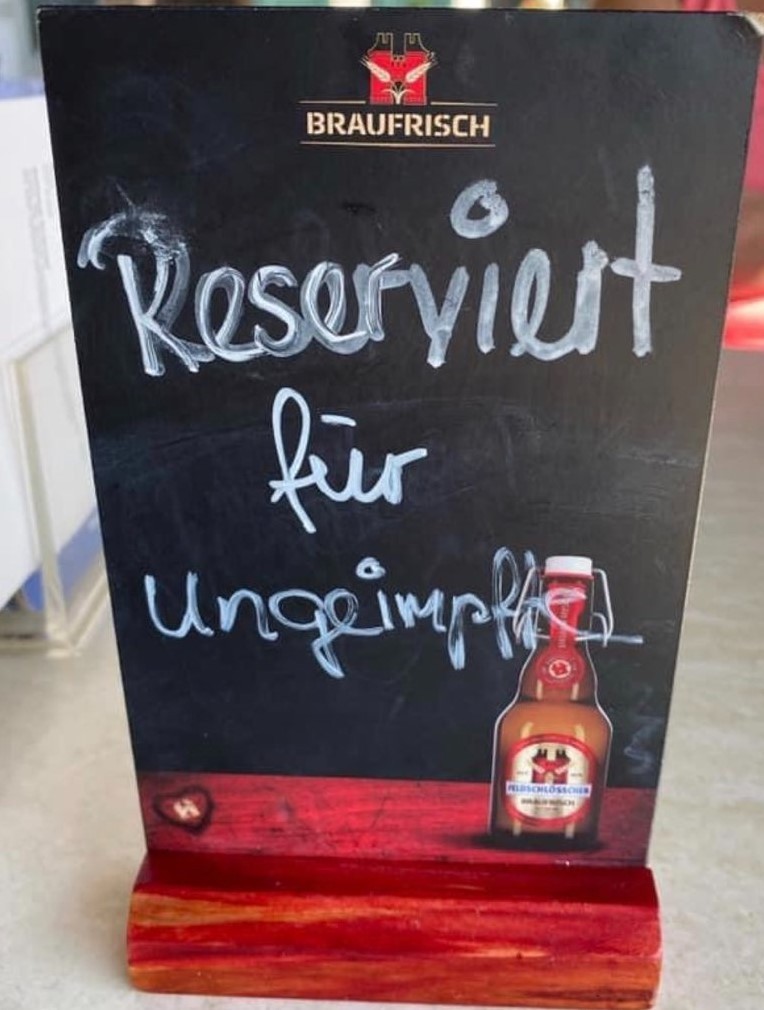 BRAUFRISCH
Reserviert
für
ungeimpfte
FELDSCHLÖSSCHEN
BRAUFRISCH